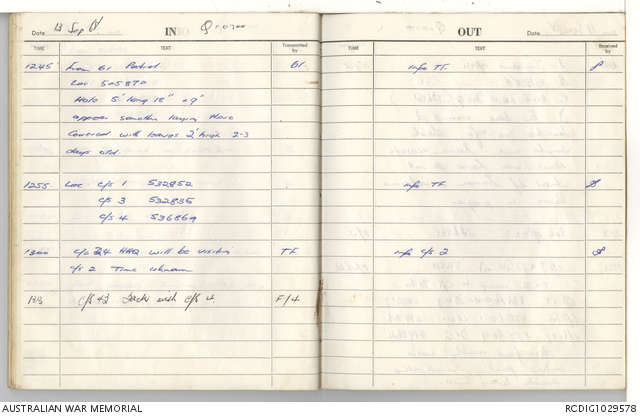 Date 13 Sep IN
OUT Date
TIME TEXT Transmitted by TIME TEXT Received by
1245 from 61 Patrol 61. info TF.
Loc 505870
Hole 5' long 18" x 9"
appear something Hole
Covered with leaves 2' high 2-3
days old.
1255 Loc c/s 1 532852 info TF
c/s 3 532855
c/s 4 536869
1300 c/o HAQ will be visiting TF info c/s 2
c/s 2 Time Unknown
c/s 42 with c/s 4 F/4
AUSTRALIAN WAR MEMORIAL RCDIG1029578